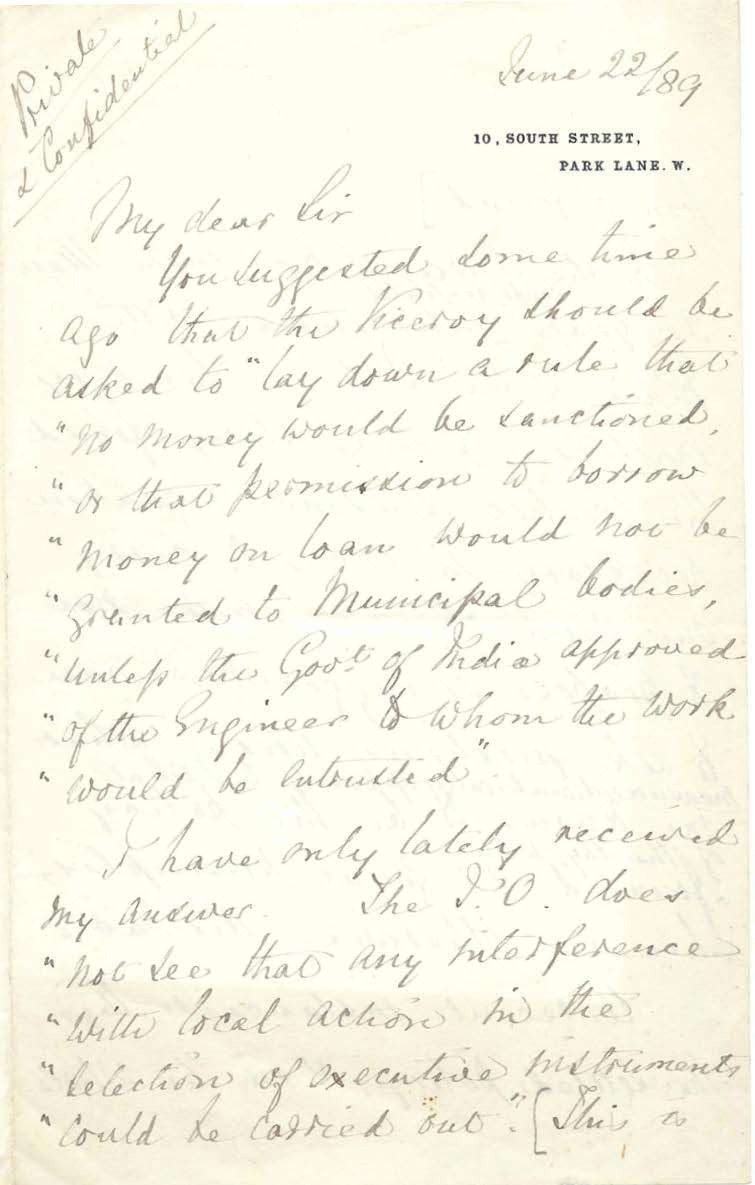 Private
& Confidential
June 22/89
10, SOUTH STREET,
PARK LANE. W.
My dear Sir
You suggested some time
ago that the Viceroy should be
asked to "lay down a rule that
"no money would be sanctioned,
"or that permission to borrow
"money on loan would not be
"granted to Municipal bodies,
"unless the Govt. of India approved
"of the Engineer to whom the work
"would be entrusted"
I have only lately received
my answer. The I.O. does
"not see that any interference
"with local action in the
"selection of executive instruments
"could be carried out". [This is